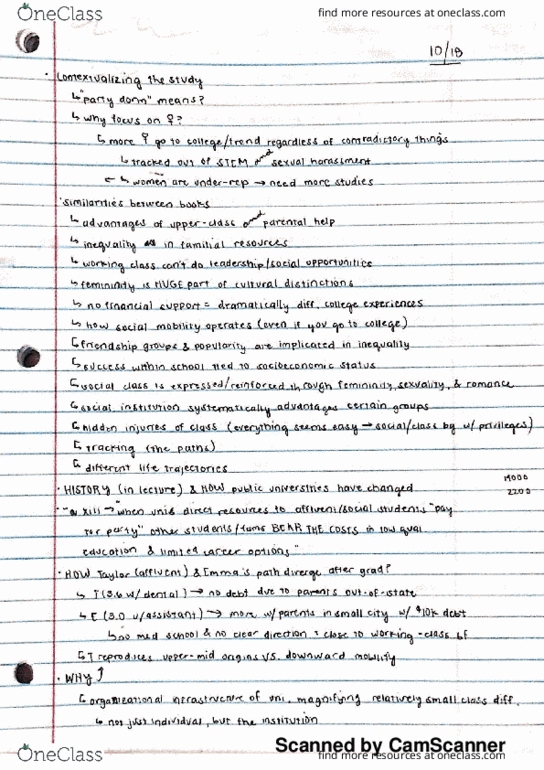 OneClass
find more resources at oneclass.com
10/18
· Contextualizing the study
↳ "party dorm" means?
↳ why focus on ♀?
↳ more ♀ go to college/trend regardless of contradictory things
↳ tracked out of STEM and sexual harassment
↳ women are under-rep → need more studies
· Similarities between books
↳ advantages of upper-class and parental help
↳ inequality in familial resources
↳ working class can't do leadership/social opportunities
↳ femininity is HUGE part of cultural distinctions
↳ no financial support = dramatically diff. college experiences
↳ how social mobility operates (even if you go to college)
↳ friendship groups & popularity are implicated in inequality
↳ success within school tied to socioeconomic status
↳ social class is expressed/reinforced through femininity, sexuality, & romance
↳ social institution systematically advantages certain groups
↳ hidden injuries of class (everything seems easy → social/class bg w/ privileges)
↳ Tracking (the paths)
↳ different life trajectories
· HISTORY (in lecture) & HOW public universities have changed
2200
→ "when unis direct resources to affluent/social students "pay
for party" other students/fams BEAR THE COSTS in low qual
education & limited career options"
· HOW Taylor (affluent) & Emma's path diverge after grad?
↳ T (3.6 w/ dental) → no debt due to parents out-of-state
↳ E (3.0 w/ assistant) → more w/ parents in small city w/ $10k debt
↳ no med school & no clear direction & close to working-class bf
↳ T reproduces upper-mid origins vs. downward mobility
· WHY ↑
↳ organizational infrastructure of uni. magnifying relatively small class diff.
↳ not just individual, but the institution
Scanned by CamScanner
OneClass
find more resources at oneclass.com